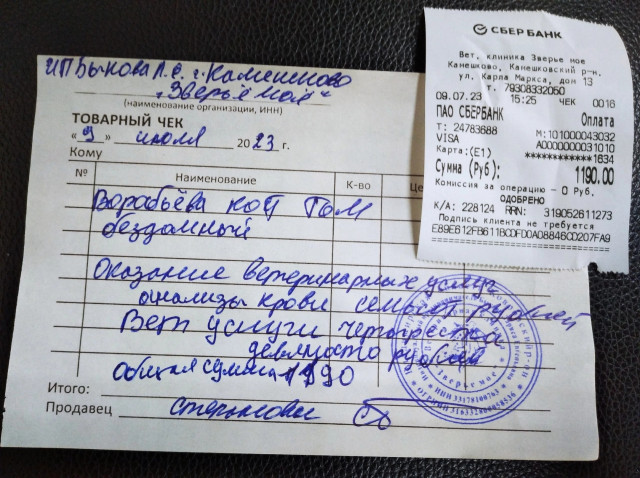 ИП Быкова Л.С. г. Камешково
"Зверьё моё"
(наименование организации, ИНН)
ТОВАРНЫЙ ЧЕК
« 9 » июля 2023 г.
Кому
№ Наименование К-во Це
Воробьёва кот Том
бездомный
Оказание ветеринарных услуг
анализы крови семьсот рублей
Вет услуги четыреста
девяносто рублей
общая сумма 1190
Итого:
Продавец
СБЕР БАНК
Вет. клиника Зверье мое
Камешково, Камешковский р-н.
ул. Карла Маркса, дом 13
т. 79308332050
09.07.23 15:25 ЧЕК 0016
ПАО СБЕРБАНК Оплата
Т: 24783688 М:101000043032
VISA A0000000031010
Карта:(E1) ************1634
Сумма (Руб): 1190.00
Комиссия за операцию – 0 Руб.
ОДОБРЕНО
К/А: 228124 RRN: 319052611273
Подпись клиента не требуется
E89E612FB611BCDFD0A08846CD207FA9